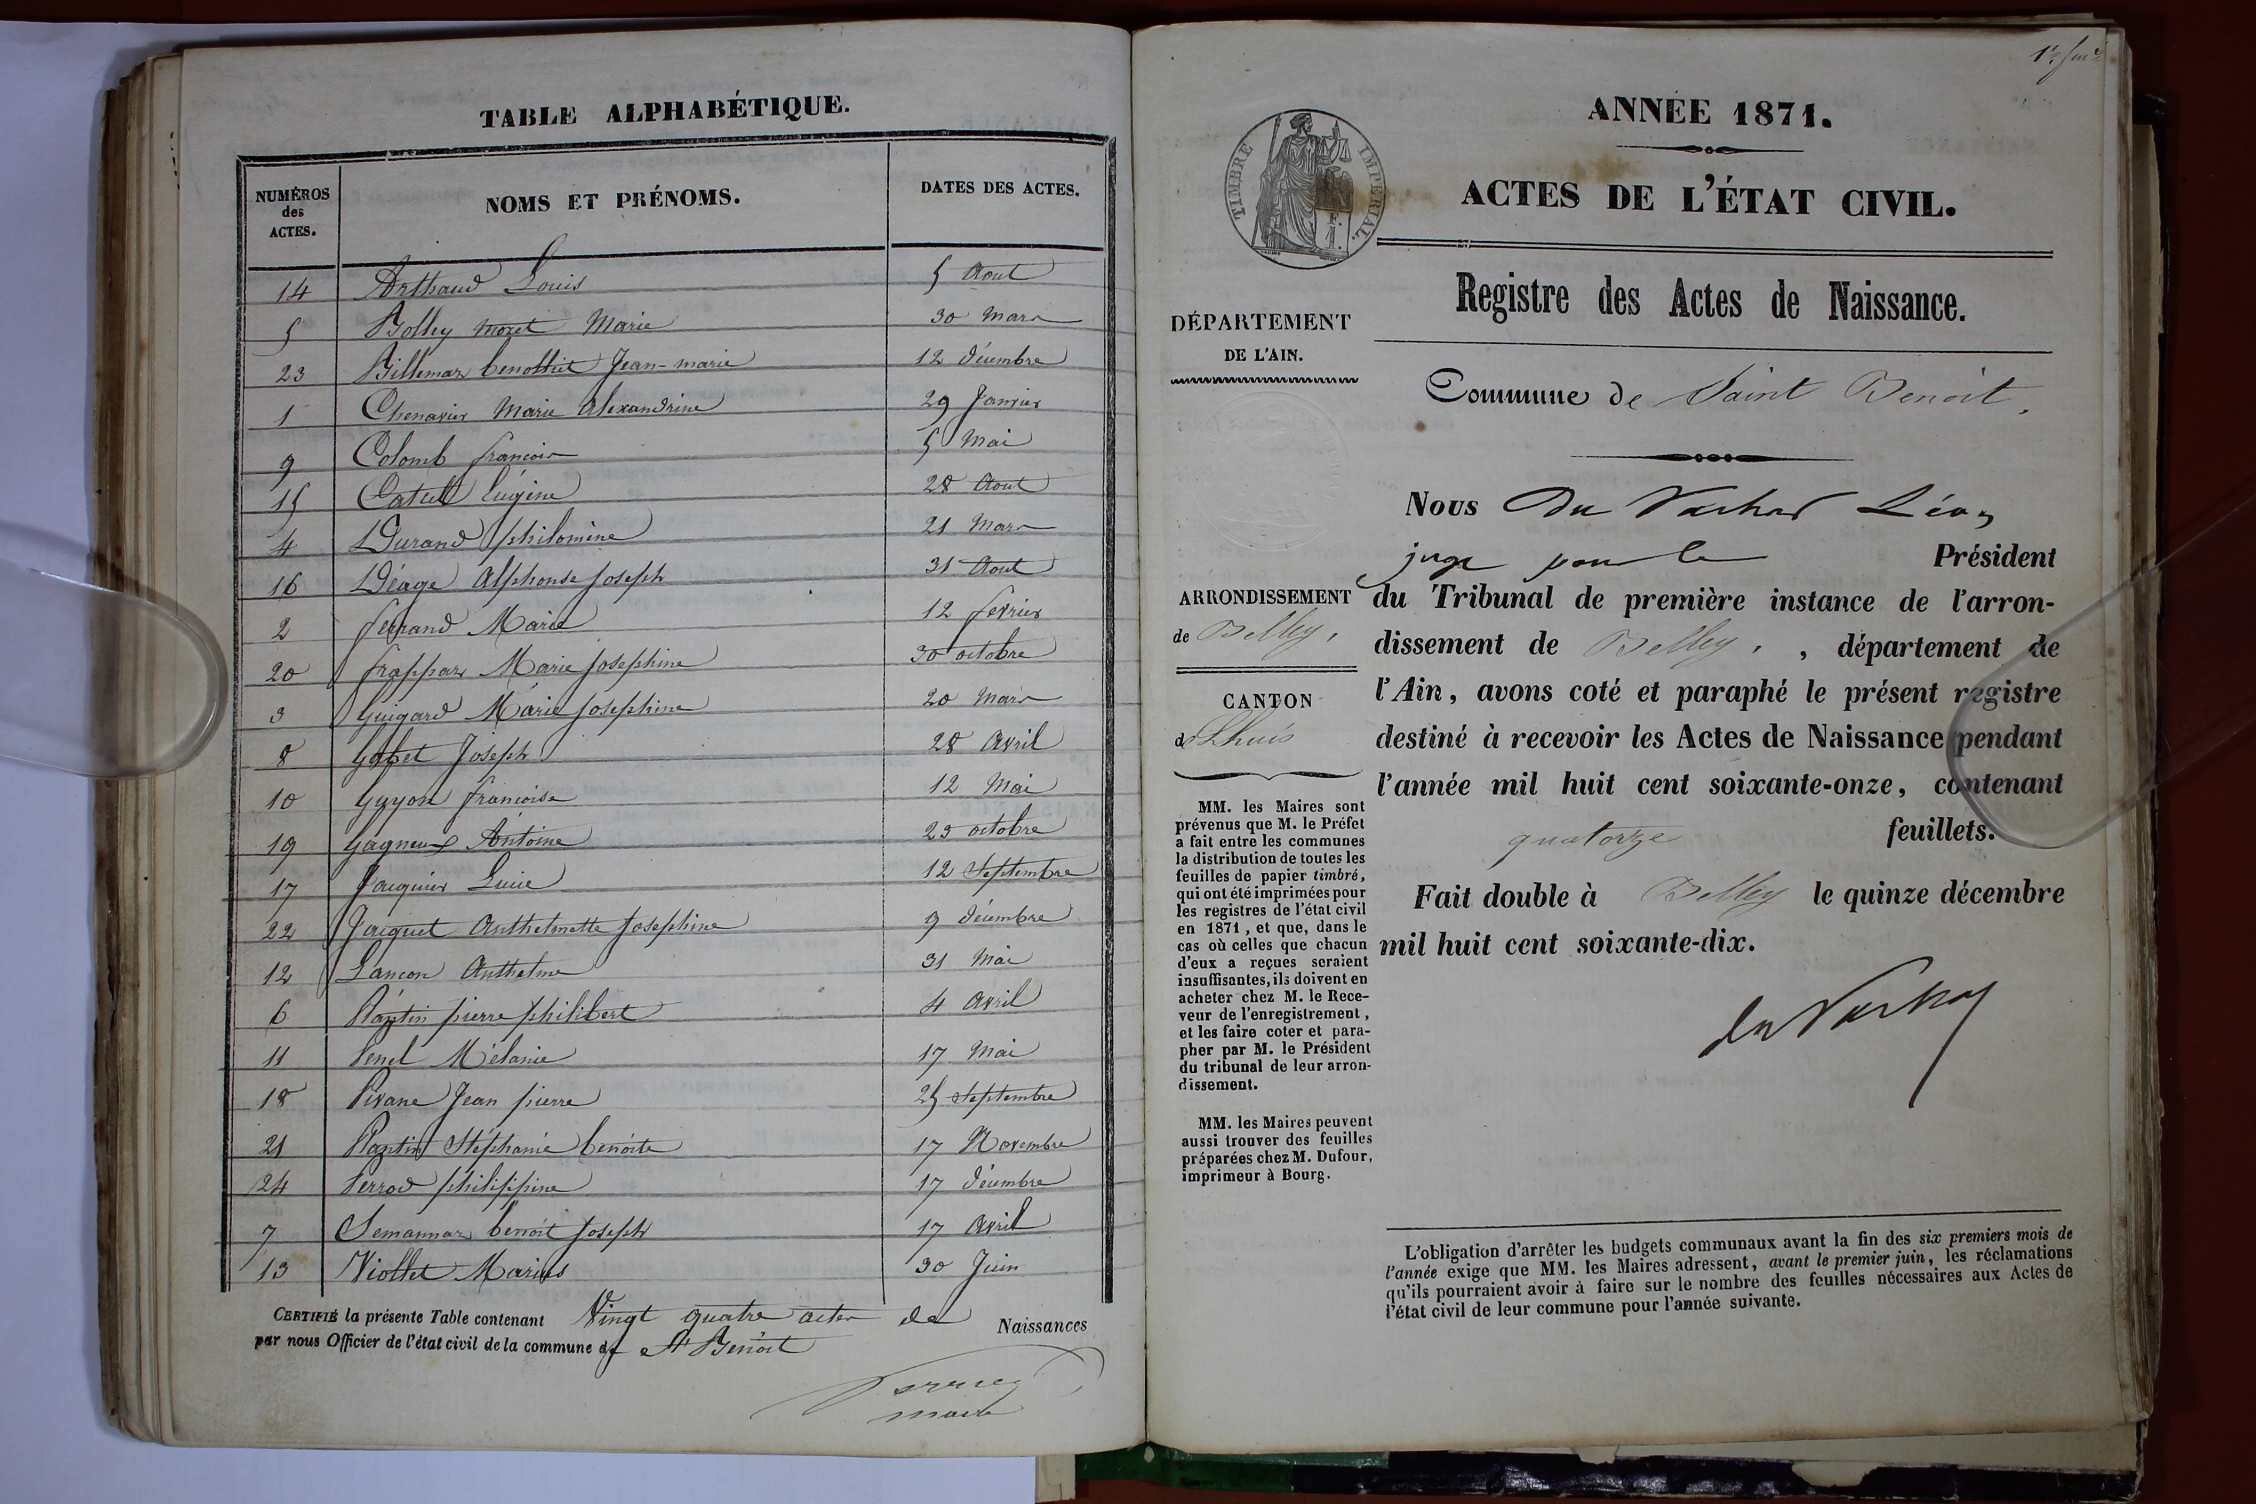 TABLE ALPHABÉTIQUE.
NUMÉROS des ACTES. NOMS ET PRÉNOMS. DATES DES ACTES.
14 Arthaud Louis 5 Aout
5 Bolley Moret Marie 30 Mars
23 Billemaz Jean-marie 12 décembre
1 Chenavier Marie Alexandrine 29 Janvier
9 Colomb françois 5 Mai
15 Catell Eugène 28 Aout
4 Durand philomène 21 Mars
16 Déage Alphonse Joseph 31 Aout
2 ferrand Marie 12 fevrier
20 frappaz Marie Josephine 30 octobre
3 Guigard Marie Josephine 20 Mars
8 Gobet Joseph 28 Avril
10 Guyon françoise 12 Mai
19 Gagneux Antoine 23 octobre
17 Jacquier Lucie 12 Septembre
22 Jacquet Anthelmette Josephine 9 décembre
12 Lançon Anthelme 31 Mai
6 Pantin pierre philibert 4 Avril
11 Penel Mélanie 17 Mai
18 Pivane Jean pierre 25 Septembre
21 Pantin Stéphanie benoite 17 Novembre
24 Perrod philippine 17 décembre
7 Semannaz benoit Joseph 17 Avril
13 Viollet Marius 30 Juin
CERTIFIÉ la présente Table contenant Vingt quatre actes de Naissances
par nous Officier de l'état civil de la commune de St Benoit
maire
ANNÉE 1871.
TIMBRE IMPÉRIAL.
ACTES DE L'ÉTAT CIVIL.
Registre des Actes de Naissance.
DÉPARTEMENT
DE L'AIN.
Commune de Saint Benoit.
ARRONDISSEMENT
de Belley.
CANTON
de Lhuis
MM. les Maires sont
prévenus que M. le Préfet
a fait entre les communes
la distribution de toutes les
feuilles de papier timbré,
qui ont été imprimées pour
les registres de l'état civil
en 1871, et que, dans le
cas où celles que chacun
d'eux a reçues seraient
insuffisantes, ils doivent en
acheter chez M. le Rece-
veur de l'enregistrement,
et les faire coter et para-
pher par M. le Président
du tribunal de leur arron-
dissement.
MM. les Maires peuvent
aussi trouver des feuilles
préparées chez M. Dufour,
imprimeur à Bourg.
Nous Du Vachat Léon
juge pour le Président
du Tribunal de première instance de l'arron-
dissement de Belley, , département de
l'Ain, avons coté et paraphé le présent registre
destiné à recevoir les Actes de Naissance pendant
l'année mil huit cent soixante-onze, contenant
quatorze feuillets.
Fait double à Belley le quinze décembre
mil huit cent soixante-dix.
du Vachat
L'obligation d'arrêter les budgets communaux avant la fin des six premiers mois de
l'année exige que MM. les Maires adressent, avant le premier juin, les réclamations
qu'ils pourraient avoir à faire sur le nombre des feuilles nécessaires aux Actes de
l'état civil de leur commune pour l'année suivante.